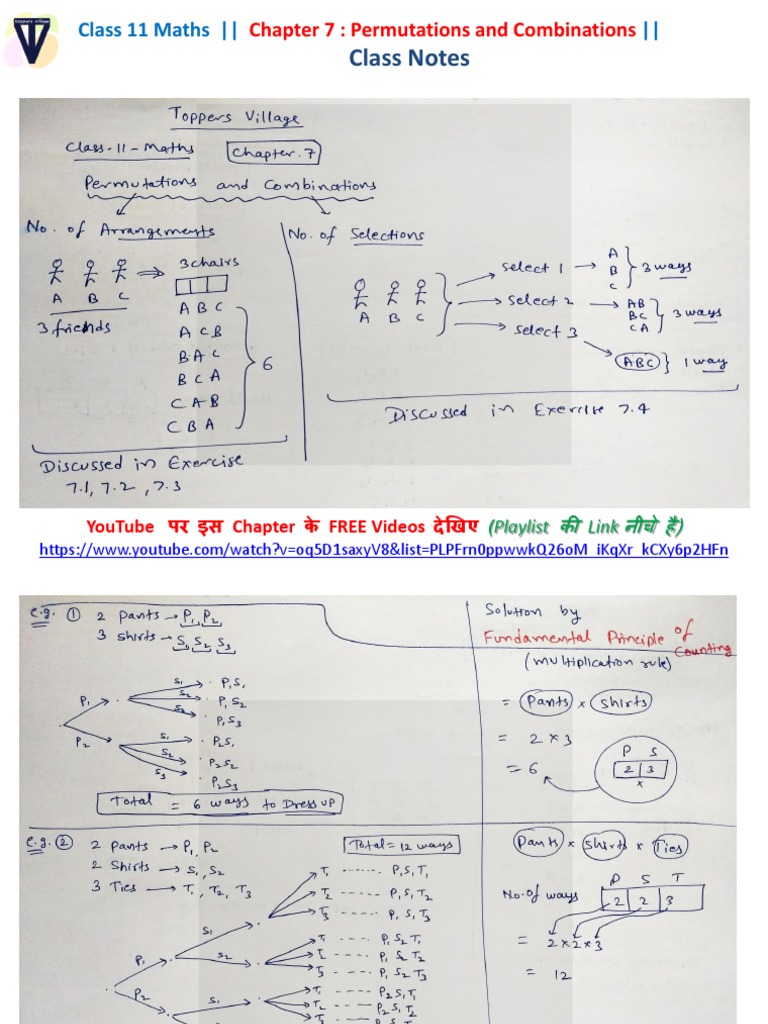 toppers village
Class 11 Maths || Chapter 7 : Permutations and Combinations ||
Class Notes
Toppers Village
Class-11-Maths Chapter.7
Permutations and Combinations
No. of Arrangements
3 chairs
A B C
3 friends
A B C
A C B
B A C
B C A
C A B
C B A
6
Discussed in Exercise
7.1, 7.2, 7.3
No. of Selections
A B C
select 1 → A B C } 3 ways
select 2 → AB BC CA } 3 ways
select 3
(ABC) } 1 way
Discussed in Exercise 7.4
YouTube पर इस Chapter के FREE Videos देखिए (Playlist की Link नीचे है)
https://www.youtube.com/watch?v=oq5D1saxyV8&list=PLPFrn0ppwwkQ26oM_iKqXr_kCXy6p2HFn
e.g. ① 2 Pants → P₁, P₂
3 Shirts → S₁, S₂, S₃
P₁
S₁ P₁S₁
S₂ P₁S₂
S₃ P₁S₃
P₂
S₁ P₂S₁
S₂ P₂S₂
S₃ P₂S₃
Total = 6 ways to Dress up
Solution by
Fundamental Principle of Counting
(multiplication rule)
= Pants × Shirts
= 2 × 3
= 6
P S
2 | 3
×
e.g. ② 2 Pants → P₁, P₂
2 Shirts → S₁, S₂
3 Ties → T₁, T₂, T₃
Total = 12 ways
P₁
S₁
T₁ ---- P₁S₁T₁
T₂ ---- P₁S₁T₂
T₃ ---- P₁S₁T₃
S₂
T₁ ---- P₁S₂T₁
T₂ ---- P₁S₂T₂
T₃ ---- P₁S₂T₃
P₂
S₁
T₁ ---- P₂S₁T₁
T₂ ---- P₂S₁T₂
T₃ ---- P₂S₁T₃
Pants × Shirts × Ties
P S T
No. of ways 2 | 2 | 3
= 2 × 2 × 3
= 12